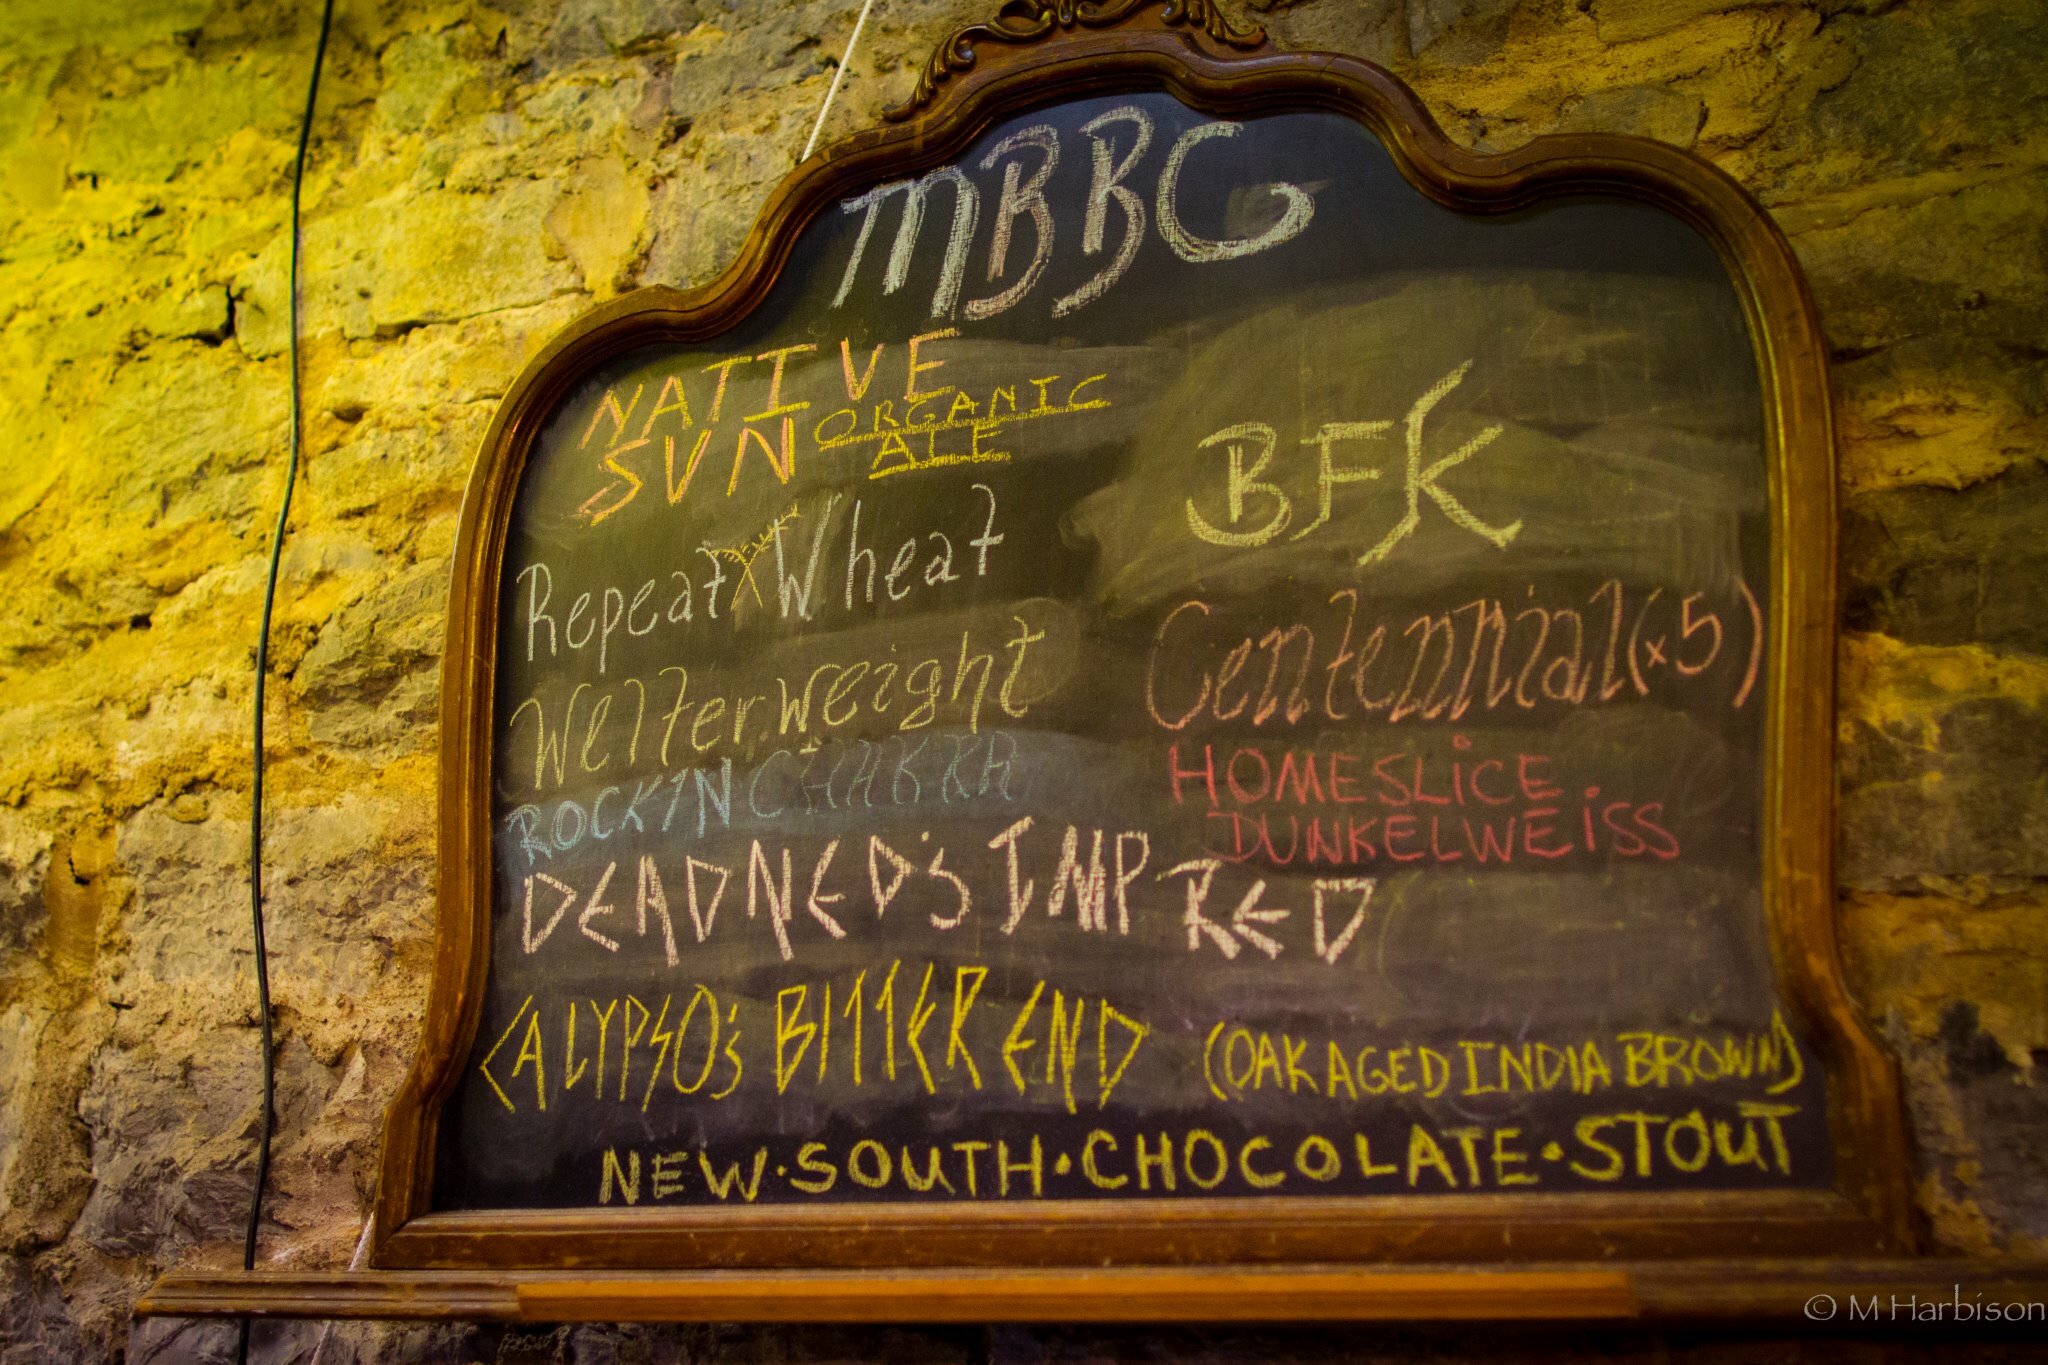 MBBC
NATIVE
SUN ORGANIC
ALE
Repeat Wheat
Welterweight
ROCKIN CHAKRA
BFK
Centennial (x5)
HOMESLiCE
DUNKELWEiSS
DEADNED'S IMP RED
CALYPSO'S BITTER END (OAK AGED INDIA BROWN)
NEW·SOUTH·CHOCOLATE·STOUT
© M Harbison